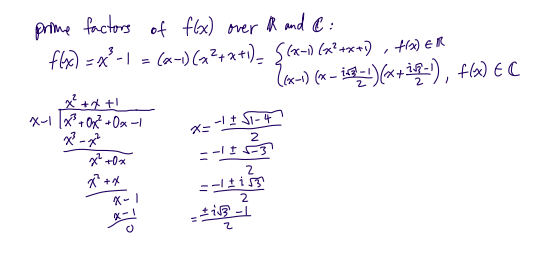 prime factors of f(x) over ℝ and ℂ :
f(x) = x³-1 = (x-1)(x²+x+1) = { (x-1)(x²+x+1) , f(x) ∈ ℝ
(x-1)(x - (i√3-1)/2)(x + (i√3-1)/2) , f(x) ∈ ℂ
x²+x+1
x-1 | x³+0x²+0x-1
x³-x²
x²+0x
x²+x
x-1
x-1
0
x = (-1 ± √(1-4))/2
= (-1 ± √-3)/2
= (-1 ± i√3)/2
= (± i√3 - 1)/2